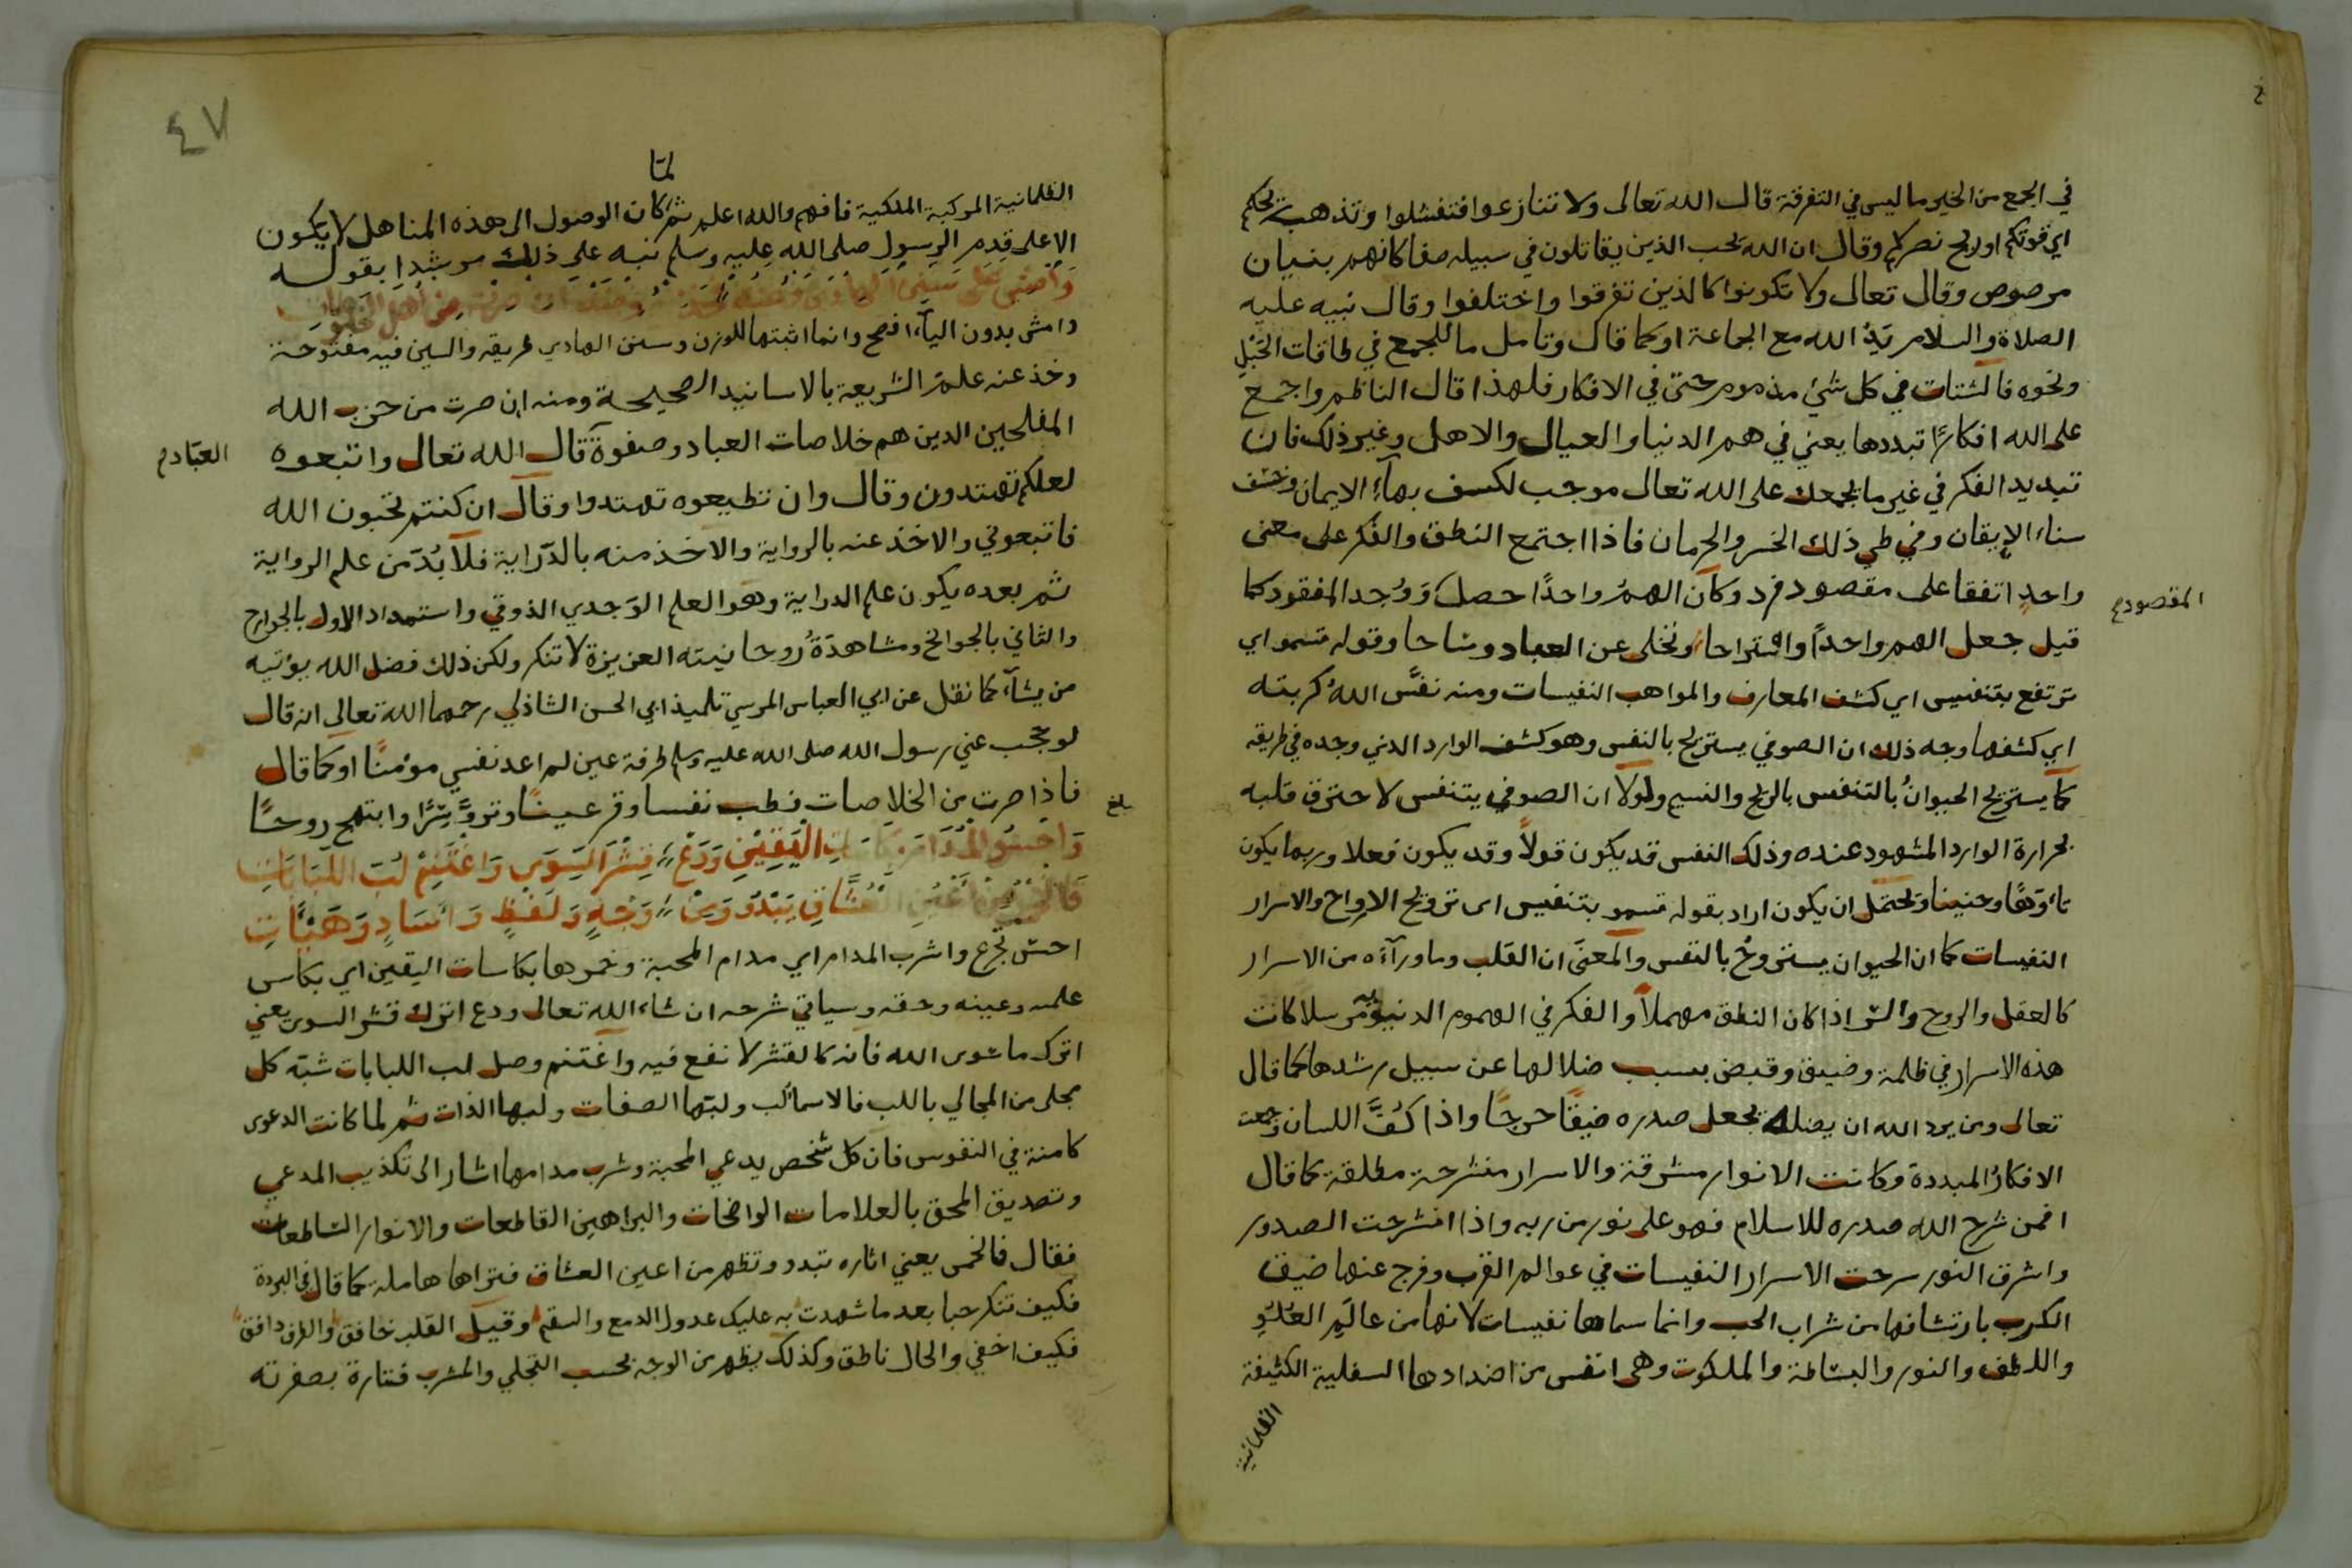 في الجمع من الخير ما ليس في التفرقة قال الله تعالى ولا تنازعوا فتفشلوا وتذهب ريحكم
اي قوتكم او ريح نصركم وقال ان الله يحب الذين يقاتلون في سبيله صفا كانهم بنيان
مرصوص وقال تعالى ولا تكونوا كالذين تفرقوا واختلفوا وقال نبيه عليه
الصلاة والسلام يَدُ الله مع الجماعة او كما قال وتامل ما للجمع في طاقات الحَبْلِ
ونحوه فالشتات في كل شئ مذموم حتى في الافكار فلهذا قال الناظم واجمع
على الله افكارًا تبددها يعني في هم الدنيا والعيال والاهل وغير ذلك فان
تبديد الفكر في غير ما يجمعك على الله تعالى موجب لكسف بهآء الايمان وخسف
سناء الإيقان وفي طي ذلك الخسر والحرمان فاذا اجتمع النطق والفكر على معنى
واحدٍ اتفقا على مقصود فرد وكان الهمُّ واحدًا حصل وَوُجد المفقود كما
المقصود
قيل جعل الهم واحدًا واستراحا وتخلى عن العباد وساحا وقوله تسمو اي
ترتفع بتنفيس اي كشف المعارف والمواهب النفيسات ومنه نفَّس اللهُ كربته
اي كشفها وجه ذلك ان الصوفي يستريح بالنفس وهو كشف الوارد الذي وجده في طريقه
كما يستريح الحيوانُ بالتنفس بالريح والنسيم ولولا ان الصوفي يتنفس لاحترق قلبه
بحرارة الوارد المشهود عنده وذلك النفس قد يكون قولاً وقد يكون فعلا وربما يكون
تاءوّهًا وحنينا ويحتمل ان يكون اراد بقوله تسمو بتنفيس اى ترويح الارواح والاسرار
النفيسات كما ان الحيوان يستروحُ بالنفس والمعنَى ان القلب وما ورآءَه من الاسرار
كالعقل والروح والسّر اذا كان النطق مهملاً والفكر في الهموم الدنيويه مرسلا كانت
هذه الاسرار في ظلمة وضيق وقبض بسبب ضلالها عن سبيل رشدها كما قال
تعالى ومن يرد الله ان يضله يجعل صدره ضيقًا حرجًا واذا كُفَّ اللسان وجمعت
الافكارُ المبددة وكانت الانوار مشرقة والاسرار منشرحة مطلقة كما قال
افمن شرح الله صدره للاسلام فهو على نور من ربه واذا انشرحت الصدور
واشرق النور سرحت الاسرار النفيسات في عوالم القرب وفرج عنها ضيق
الكرب بارتشافها من شراب الحب وانما سماها نفيسات لانها من عالَمِ العُلْوِ
واللطف والنور والبساطة والملكوت وهى انفس من اضدادها السفلية الكثيفة
الظلمانية
٤٧
لمّا
الظلمانية المركبة الملكية فافهم والله اعلم ثم كان الوصول الى هذه المناهل لا يكون
الا على قدم الرسول صلى الله عليه وسلم نبه على ذلك مرشدا بقوله
وامش بدون اليآء افصح وانما اثبتها للوزن وسنن الهادي طريقه والسين فيه مفتوحة
وخذ عنه علم الشريعة بالاسانيد الصحيحة ومنه ان صرت من حزب الله
المفلحين الدين هم خلاصات العباد وصفوة قال الله تعالى واتبعوه
العبّاد
لعلكم تهتدون وقال وان تطيعوه تهتدوا وقال ان كنتم تحبون الله
فاتبعوني والاخذ عنه بالرواية والاخذ منه بالدّراية فلا بُدَّ من علم الرواية
ثم بعده يكون علم الدراية وهو العلم الوَجدي الذوقي واستمداد الاول بالجوارح
والثاني بالجوانح ومشاهدةُ رُوحانيته العزيزة لا تنكر ولكن ذلك فضل الله يؤتيه
من يشآء كما نقل عن ابي العباس المرسي تلميذ ابي الحسن الشاذلي رحمهما الله تعالى انه قال
لو حجب عني رسول الله صلى الله عليه وسلم طرفة عين لم اعد نفسي مؤمنًا او كما قال
فاذا صرت من الخلاصات فطب نفسا وقر عينًا وتروَّ سِرًّا وابتهج روحًا
بلغ
الْيَقِيْنِ وَدَعْ قِشْرَ السِّوَى وَاغْتَنِمْ لُبَّ اللُّبَابَاتِ
فَالخَمْرُ مِنْ اَعْيُنِ الْعُشَّاقِ يَبْدُو وَمِنْ وَجْهٍ وَلَفْظٍ وَانْشَادٍ وَهَيْئَاتِ
احتس تجرع واشرب المدام اي مدام المحبة وخمرها بكاسات اليقين اي بكاس
علمه وعينه وحقه وسياتي شرحه ان شاء الله تعالى ودع اترك قشر السوى يعني
اترك ما سوى الله فانه كالقشر لا نفع فيه واغتنم وصل لب اللبابات شبّه كل
مجلى من المجالي باللب فالاسما لب ولبّها الصفات ولبها الذات ثم لما كانت الدعوى
كامنة في النفوس فان كل شخص يدعي المحبة وشرب مدامها اشار الى تكذيب المدعي
وتصديق المحق بالعلامات الواضحات والبراهين القاطعات والانوار السّاطعات
فقال فالخمر يعني اثاره تبدو وتظهر من اعين العشاق فتراها هاملة كما قال في البردة
فكيف تنكر حبا بعد ما شهدت به عليك عدول الدمع والسقم وقيل القلب خافق والطرف دافق
فكيف اخفي والحال ناطق وكذلك يظهر من الوجه بحسب التجلي والمشرب فتارة بصفرته